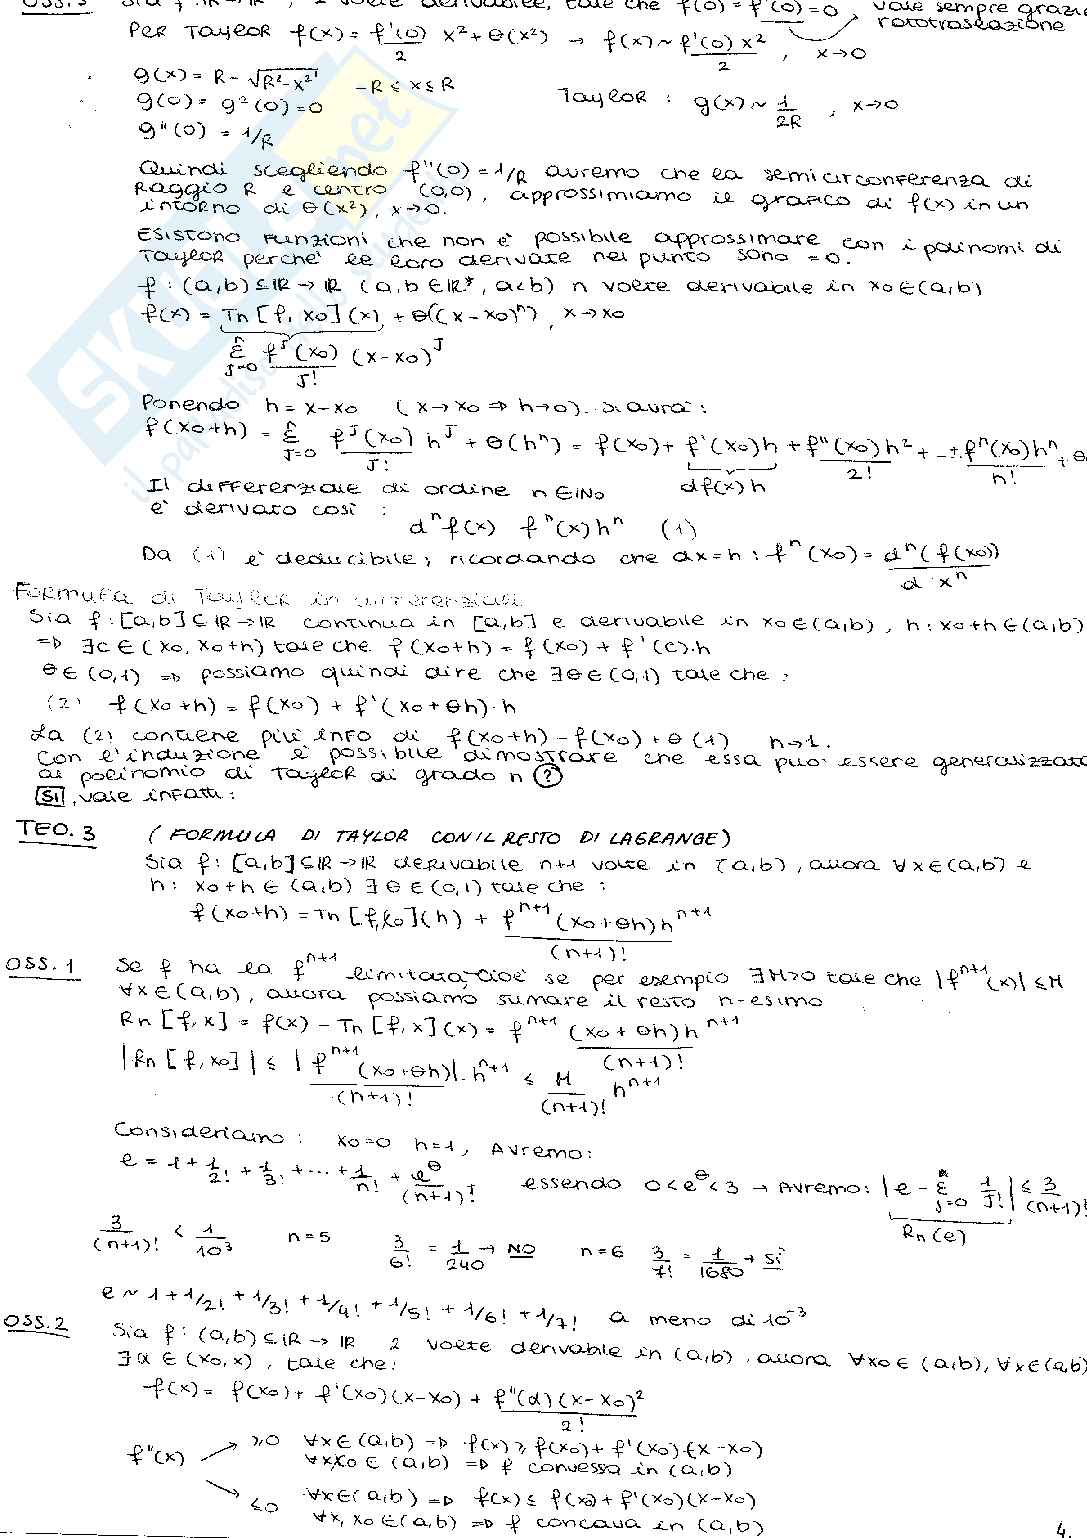 OSS.3 Sia f: IR→IR, 2 volte derivabile, tale che f(0) = f'(0) = 0 vale sempre grazie
rototraslazione
PER TAYLOR f(x) = f'(0)/2 x² + θ(x²) → f(x) ~ f'(0)x²/2 , x→0
g(x) = R - √(R²-x²) -R ≤ x ≤ R
g(0) = g²(0) = 0 TaylOR : g(x) ~ 1/2R , x→0
g"(0) = 1/R
Quindi scegliendo f"(0) = 1/R avremo che la semicirconferenza di
Raggio R e centro (0,0), approssimiamo il grafico di f(x) in un
intorno di θ(x²), x→0.
ESISTONO FUNZIONI che non è possibile approssimare con i polinomi di
TaylOR perche' le loro derivate nel punto sono = 0.
f : (a,b) ⊆ IR → IR (a,b ∈ IR*, a<b) n volte derivabile in x0 ∈ (a,b)
f(x) = Tn [f, x0](x) + θ((x-x0)^n), x→x0
Σ^n_{J=0} f^J(x0)/J! (x-x0)^J
Ponendo h = x-x0 (x→x0 ⇒ h→0). Si avra':
f(x0+h) = Σ^n_{J=0} f^J(x0)/J! h^J + θ(h^n) = f(x0) + f'(x0)h + f"(x0)h²/2! + -+ f^n(x0)h^n/n! + θ
df(x)h
Il differenziale di ordine n ∈ IN0
e' derivato cosi :
d^n f(x) f^n(x)h^n (1)
Da (1) e' deducibile; ricordando che dx=h : f^n(x0) = d^n(f(x0))/d x^n
Formula di Taylor in differenziali
Sia f: [a,b] ⊆ IR→IR continua in [a,b] e derivabile in x0 ∈ (a,b), h: x0+h ∈ (a,b)
⇒ ∃c ∈ (x0, x0+h) tale che f(x0+h) = f(x0) + f'(c)·h
θ ∈ (0,1) ⇒ possiamo quindi dire che ∃θ ∈ (0,1) tale che :
(2) f(x0+h) = f(x0) + f'(x0+θh)·h
La (2) contiene più info di f(x0+h) - f(x0) + θ(1) h→1.
Con l'induzione è possibile dimostrare che essa puo' essere generalizzata
al polinomio di Taylor di grado n ?
SI, vale infatti:
TEO. 3 (FORMULA DI TAYLOR CON IL RESTO DI LAGRANGE)
Sia f: [a,b] ⊆ IR→IR derivabile n+1 volte in (a,b), allora ∀x ∈ (a,b) e
h: x0+h ∈ (a,b) ∃ θ ∈ (0,1) tale che :
f(x0+h) = Tn [f,x0](h) + f^{n+1}(x0+θh)h^{n+1}/(n+1)!
OSS. 1 Se f ha la f^{n+1} limitata, cioè se per esempio ∃M>0 tale che |f^{n+1}(x)| ≤ M
∀x ∈ (a,b), allora possiamo sumare il resto n-esimo
Rn [f,x] = f(x) - Tn [f,x](x) = f^{n+1}(x0+θh)h^{n+1}/(n+1)!
|Rn [f,x0]| ≤ |f^{n+1}(x0+θh)|·h^{n+1}/(n+1)! ≤ M/(n+1)! h^{n+1}
Consideriamo : x0=0 h=1, Avremo:
e = 1 + 1/2! + 1/3! + ... + 1/n! + e^θ/(n+1)! essendo 0<e^θ<3 → Avremo: |e - Σ^n_{J=0} 1/J!| ≤ 3/(n+1)!
Rn(e)
3/(n+1)! < 1/10³ n=5 3/6! = 1/240 → NO n=6 3/7! = 1/1680 → Si
e ~ 1 + 1/2! + 1/3! + 1/4! + 1/5! + 1/6! + 1/7! a meno di 10^-3
OSS. 2 Sia f: (a,b) ⊆ IR → IR 2 volte derivabile in (a,b), allora ∀x0 ∈ (a,b), ∀x∈(a,b)
∃α ∈ (x0,x), tale che:
f(x) = f(x0) + f'(x0)(x-x0) + f"(α)(x-x0)²/2!
≥0 ∀x ∈ (a,b) ⇒ f(x) ≥ f(x0) + f'(x0)(x-x0)
f"(x) ∀x,x0 ∈ (a,b) ⇒ f convessa in (a,b)
≤0 ∀x∈(a,b) ⇒ f(x) ≤ f(x0) + f'(x0)(x-x0)
∀x, x0 ∈ (a,b) ⇒ f concava in (a,b)
4.
SKUOLA.net